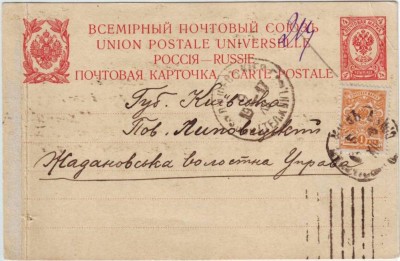 ВСЕМІРНЫЙ ПОЧТОВЫЙ СОЮЗЪ
UNION POSTALE UNIVERSELLE
РОССІЯ—RUSSIE
ПОЧТОВАЯ КАРТОЧКА—CARTE POSTALE
Губ Київська
Пов. Липовецький
Жадановська волостна Управа